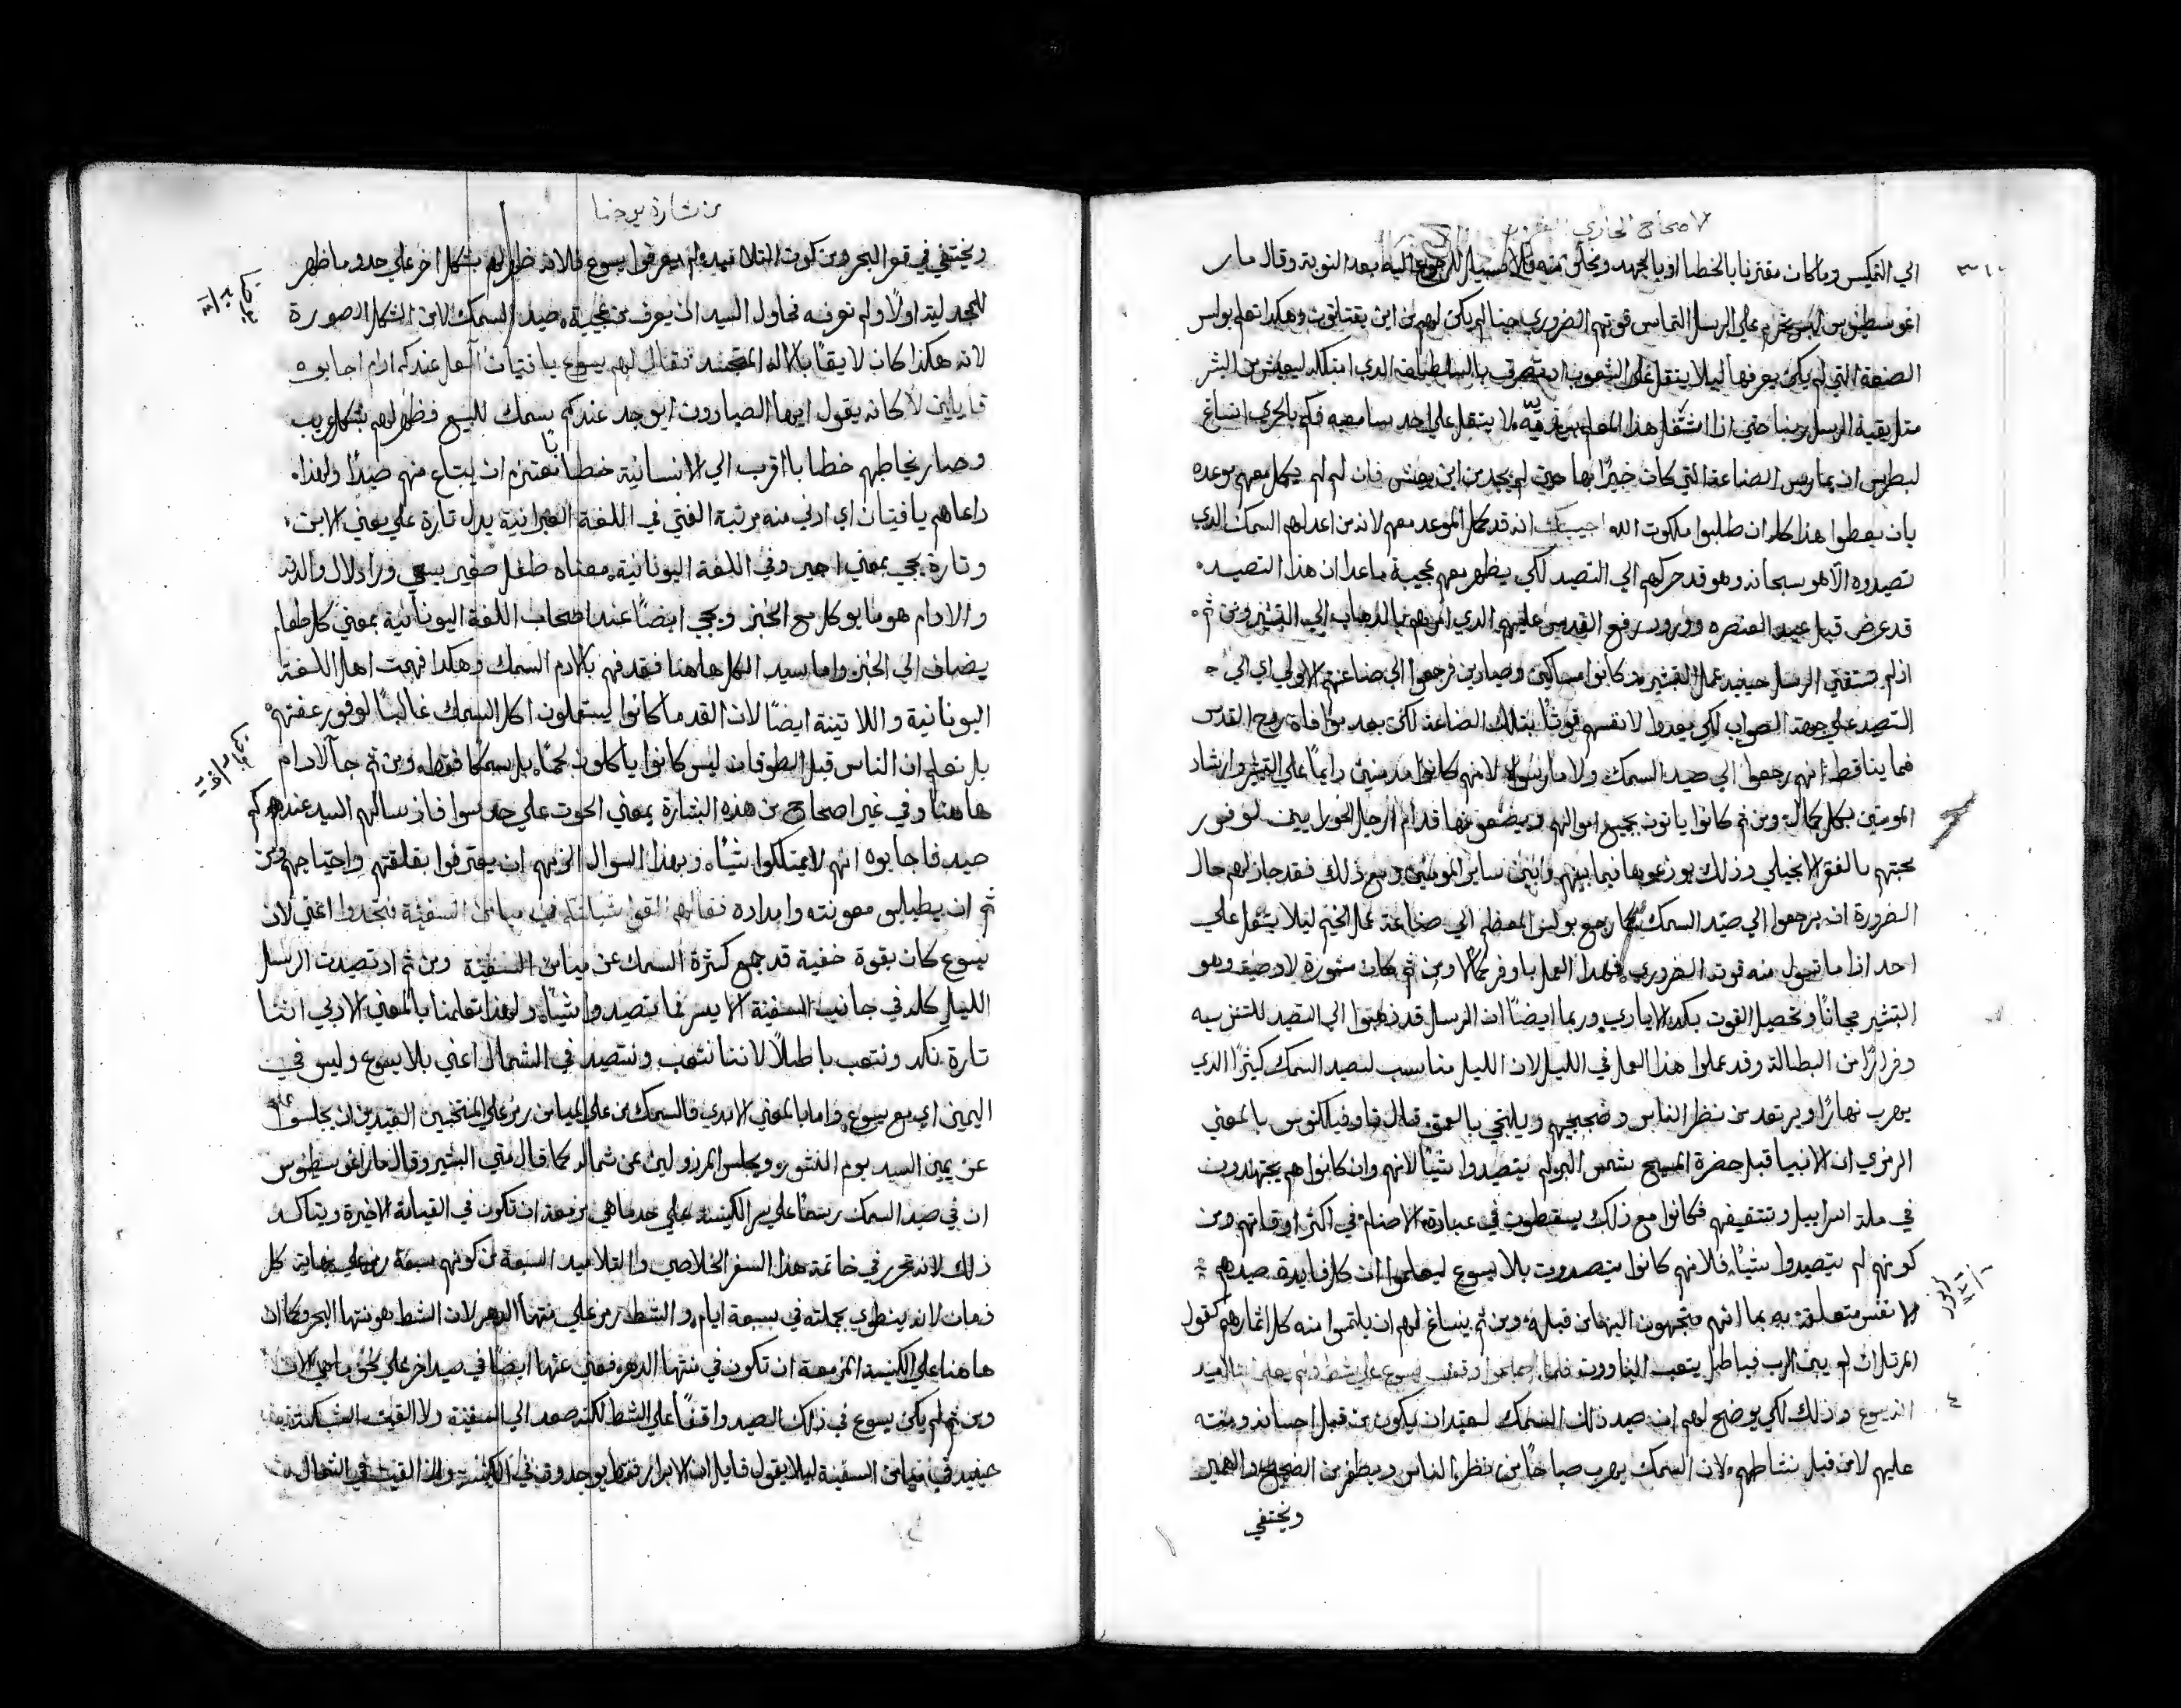 الاصحاح الحادي
الي التمكيس وما كان مقترنا بالخطا او بالجهد ويخلو منه فلا سبيل للرجوع اليه بعد التوبة وقال مار
اغوسطينوس لم يحرم علي الرسل التماس قوتهم الضروري حينما لم يكن لهم من اين يقتاتون وهكذا تعلم بولس
الصنعة التي لم يكن يعرفها ليلا يثقل علي الشعوب
مثل بقية الرسل ربنا حتي اذا اشتغل هذا المعلم بيديه لا يثقل علي احد سامعيه فكم بالحري انساغ
لبطرس ان يمارس الصناعة التي كان خبيرًا بها حين لم يجد من اين يعش فان لم لم يكمل معهم موعده
بان يعطوا هذا كله ان طلبوا ملكوت الله اجيبك انه قد كمل الموعد معهم لانه من اعد لهم السمك الدي
تصيدوه الا هو سبحانه وهو قد حركهم الي التصيد لكي يظهر معهم عجيبة ما عدا ان هذا التصيد
قد عرض قبل عيد العنصره وورود روح القدس عليهم الدي امرهم بالذهاب الي التبشير ومن ثم
اذ لم تستقني الرسل حينيد عمل التبشير بل كانوا مساكين وصيادين فرجعوا الي صناعتهم الاولي اي الي
التصيد علي جهة الصواب لكي يعدوا لانفسهم قوتًا بتلك الصناعة لكن بعد موافاة روح القدس
فما يناقط انهم رجعوا الي صيد السمك ولا مارسوه لانهم كانوا مدمنين دايمًا علي التبشير وارشاد
المومنين بكل كمالة ومن ثم كانوا ياتون بجميع اموالهم ويضعونها قدام ارجل الحواريين لوفور
محبتهم بالفقر الانجيلي وذلك يوزعوها فيما بينهم وبين ساير المومنين ومع ذلك فقد جاز لهم حال
الضرورة ان يرجعوا الي صيد السمك كما رجع بولس المعظم الي صناعة عمل الخيم ليلا يثقل علي
احد اذا ما تسول منه قوته الضروري فهدا العمل باوفر كمالا ومن ثم كان مشورة لا وصيه وهو
التبشير مجانًا وتحصيل القوت بكد الايادي وربما ايضًا ان الرسل قد ذهبوا الي التصيد للتنزيه
وفرارًا من البطالة وقد عملوا هذا العمل في الليل لان الليل مناسب لتصيد السمك كثيرًا الدي
يهرب نهارًا ويرتعد من نظر الناس وضجيجهم ويلتجي بالعمق قال تاوفيلكتوس بالمعني
الرمزي ان الانبيا قبل حضرة المسيح شمس البر لم يتصيدوا شيًا لانهم وان كانوا هم يجتهدون
في ملة اسراييل وتثقيفهم فكانوا مع ذلك يسقطون في عبادة الاصنام في اكثر اوقاتهم ومن
كونهم لم يتصيدوا شيًا فلانهم كانوا يتصيدون بلا يسوع ليعلموا ان كل فايدة صيدهم
الانفس متعلقة به بما انهم متجهون اليها من قبله ومن ثم ينساغ لهم ان يلتمسوا منه كل اثمارهم كقول
المرتل ان لم يبن الرب فباطل يتعب البناوون فلما اصبحوا وقف يسوع علي الشط ولم يعلم التلاميد
انه يسوع وذلك لكي يوضح لهم ان صيد ذلك السمك لعتيد ان يكون من قبل احسانه ومنته
عليهم لا من قبل نشاطهم لان السمك يهرب صباحًا من نظر الناس
ويختفي
من بشارة يوحنا
ويختفي في قعر البحر ومن كون التلاميد لم يعرفوا يسوع فلانه ظهر لهم بشكل اخر علي حدو ما ظهر
للمجدلية اولًا ولم تعرفه فحاول السيد ان يعرف من عجيبة صيد السمك لا من الشكل او صورة
لانه هكذا كان لايقًا بالاله المتجسد فقال لهم يسوع يا فتيان العل عندكم ادام اجابوه
قايلين لا كانه يقول ايها الصيادون ايوجد عندكم سمك للبيع فظهر لهم بشكل غريب
وصار يخاطبهم خطابا اقرب الي الانسانية خطابًا معتزم ان يبتاع منهم صيدًا ولهذا
دعاهم يا فتيان اي ادني منه مرتبة الفتي في اللغة العبرانية يدل تارة علي معني الابن
وتارة يجي بمعني اجير وفي اللغة اليونانية معناه طفل صغير
والادام هو ما يوكل مع الخبز ويجي ايضًا عند اصحاب اللغة اليونانية بمعني كل طعام
يضاف الي الخبز واما سيد الكل هاهنا فقد فهم بالادم السمك وهكدا فهمت اهل اللغة
اليونانية واللاتينة ايضًا لان القدما كانوا يستعملون اكل السمك غالبًا لوفور عفتهم
بل نعلم ان الناس قبل الطوفان ليس كانوا ياكلون لحمًا بل سمكًا فقط ومن ثم جا الادام
هاهنا وفي غير اصحاح من هذه البشارة بمعني الحوت علي حد سوا فاذ سالهم السيد عندهم كم
صيد فاجابوه انهم لا يمتلكوا شيًا وبهذا السوال الزمهم ان يعترفوا بفاقتهم واحتياجهم ومن
ثم ان يطلبوا معونته وامداده فقال لهم القوا شبكتكم في ميامن السفينة فتجدوا اعني لان
يسوع كان بقوة خفية قد جمع كثرة السمك عن ميامن السفينة ومن ثم اد تصيدت الرسل
الليل كله في جانب السفينة الايسر فما تصيدوا شيًا ولهذا تعلمنا بالمعني الادبي اننا
تارة نكد ونتعب باطلًا لاننا نتعب ونتصيد في الشمال اعني بلا يسوع وليس في
اليمين اي مع يسوع واما بالمعني الابدي فالسمك من علي الميامن رمز علي المنتخبين العتيدين ان يجلسوا
عن يمين السيد يوم النشور ويجلس المرزولين عن شماله كما قال متي البشير وقال مار اغوسطينوس
ان في صيد السمك رمزًا علي سر الكنيسة علي حد ما هي مزمعة ان تكون في القيامة الاخيرة ويتاكد
ذلك لانه تحرر في خاتمة هذا السفر الخلاصي والتلاميد السبعة من كونهم سبعة رمز علي نهاية كل
زمان لانه ينطوي بجملته في سبعة ايام والشط رمز علي منتها الدهر لان الشط هو منتها البحر وكما ان
هاهنا علي الكنيسة المزمعة ان تكون في منتها الدهر فعني عنها ايضًا في صيد اخر علي نحو ما هي الان
ومن ثم لم يكن يسوع في ذلك الصيد واقفًا علي الشط لكنه صعد الي السفينة ولا القيت الشبكة
حينيد في ميامن السفينة ليلا يقول قايل ان الابرار فقط يوجدون في الكنيسة ولا القيت في الشمال